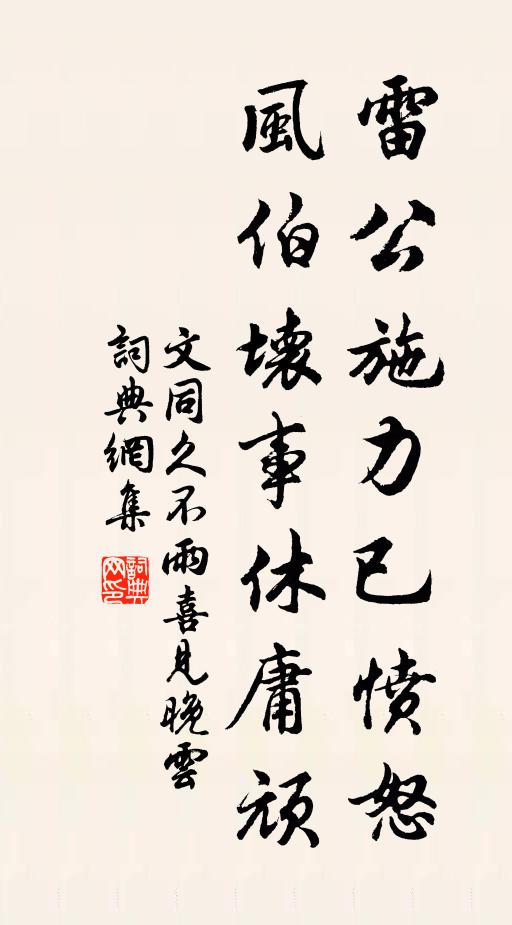 雷公施力已憤怒
風伯壞事休庸頑
文同久不雨喜見晚雲
詞典網集
詞典网印